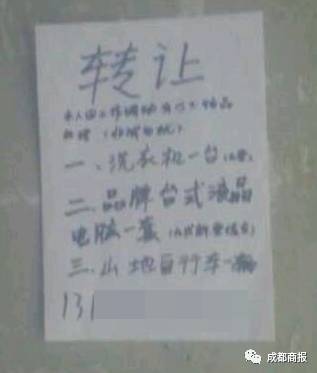 转让
本人因工作调动有以下物品
一、洗衣机一台
二、品牌台式液晶
电脑一套
三、山地自行车一辆
131
成都商报